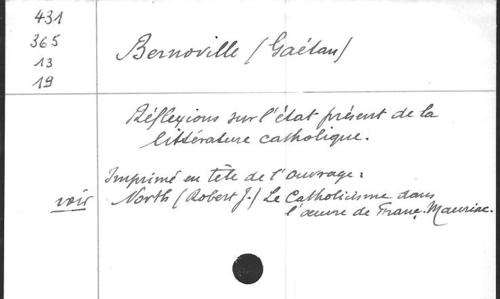 431
365
13
19
Bernoville (Gaétan)
Réflexions sur l'état présent de la
littérature catholique.
Imprimé en tête de l'ouvrage :
voir North (Robert J.) Le Catholicisme dans
l'œuvre de Franç. Mauriac.